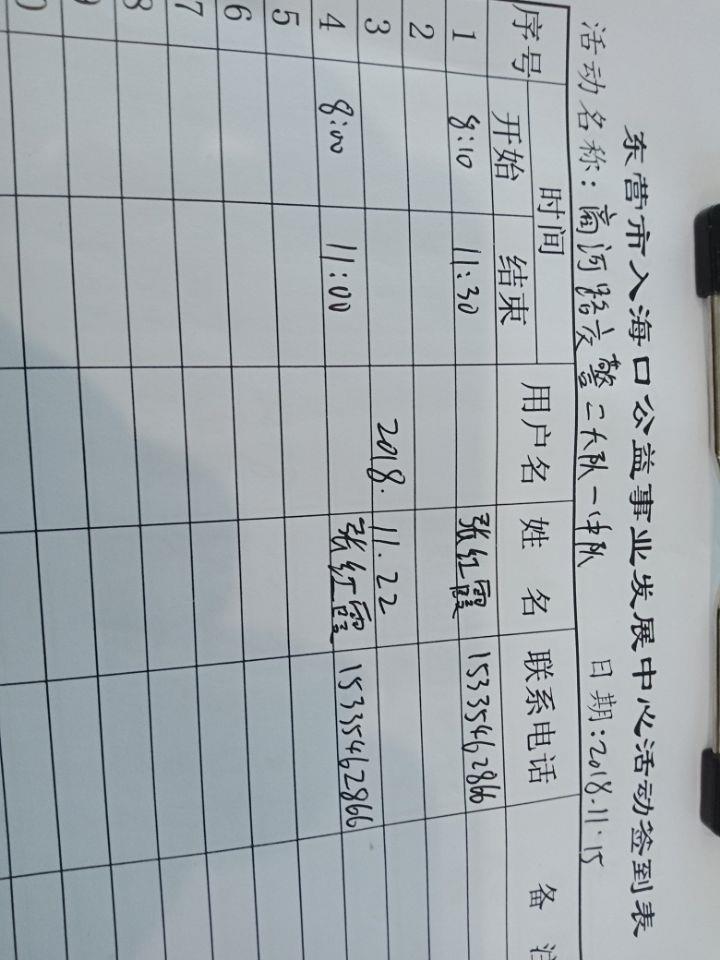 东营市入海口公益事业发展中心活动签到表
活动名称：商河路交警二大队一中队 日期：2018.11.15
序号 时间 用户名 姓名 联系电话 备注
开始 结束
1 8:10 11:30 张红霞 15335462866
2
3 2018.11.22
4 8:00 11:00 张红霞 15335462866
5
6
7
8